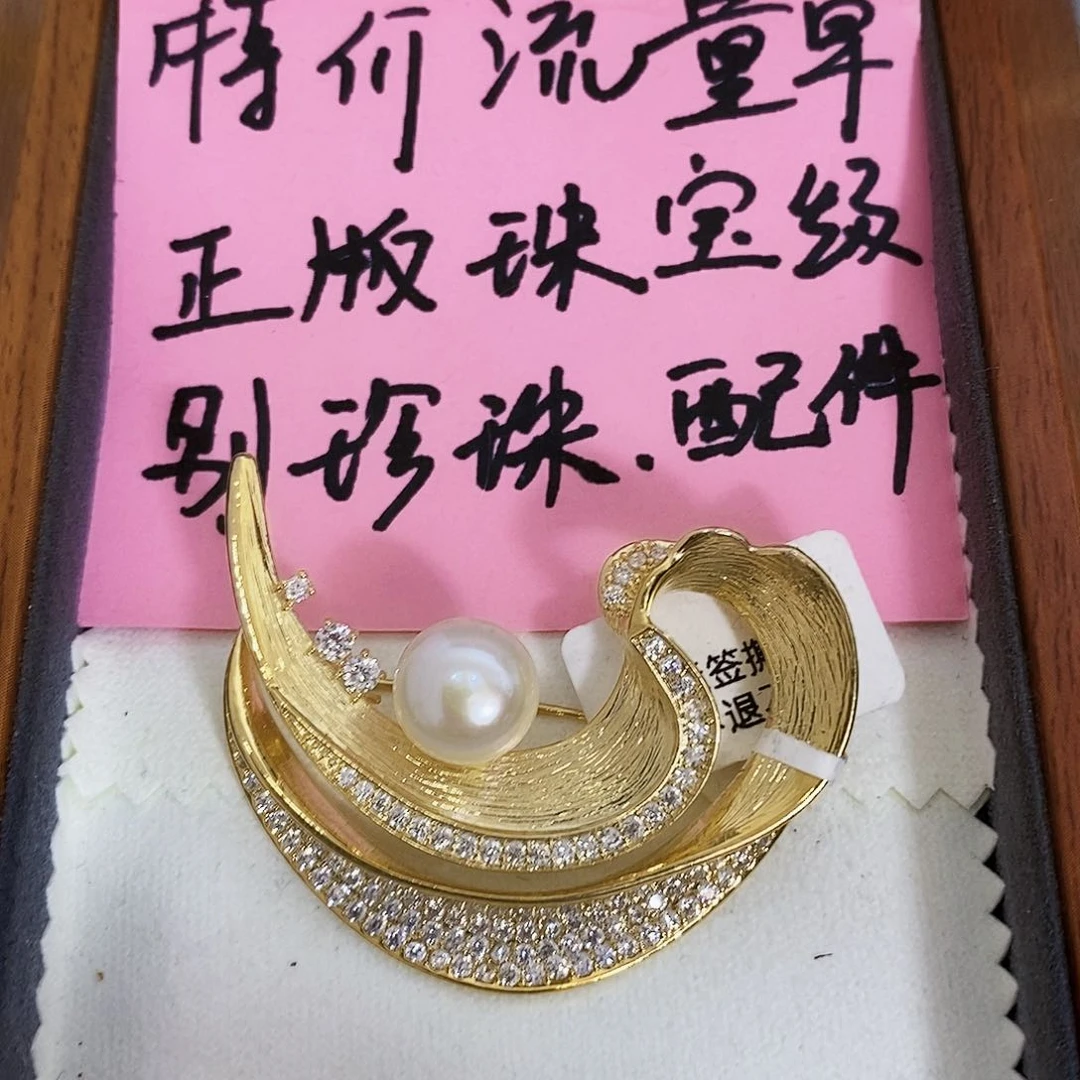 特价流量单
正版珠宝级
别珍珠.配件
签携
退